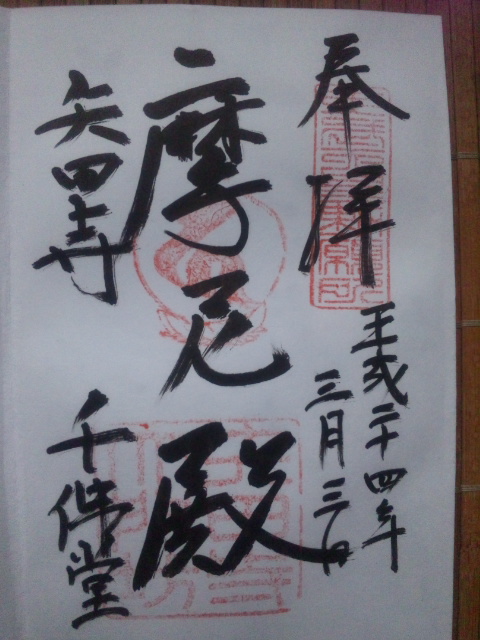 奉拝
平成二十四年
三月三日
摩尼殿
矢田寺
千佛堂